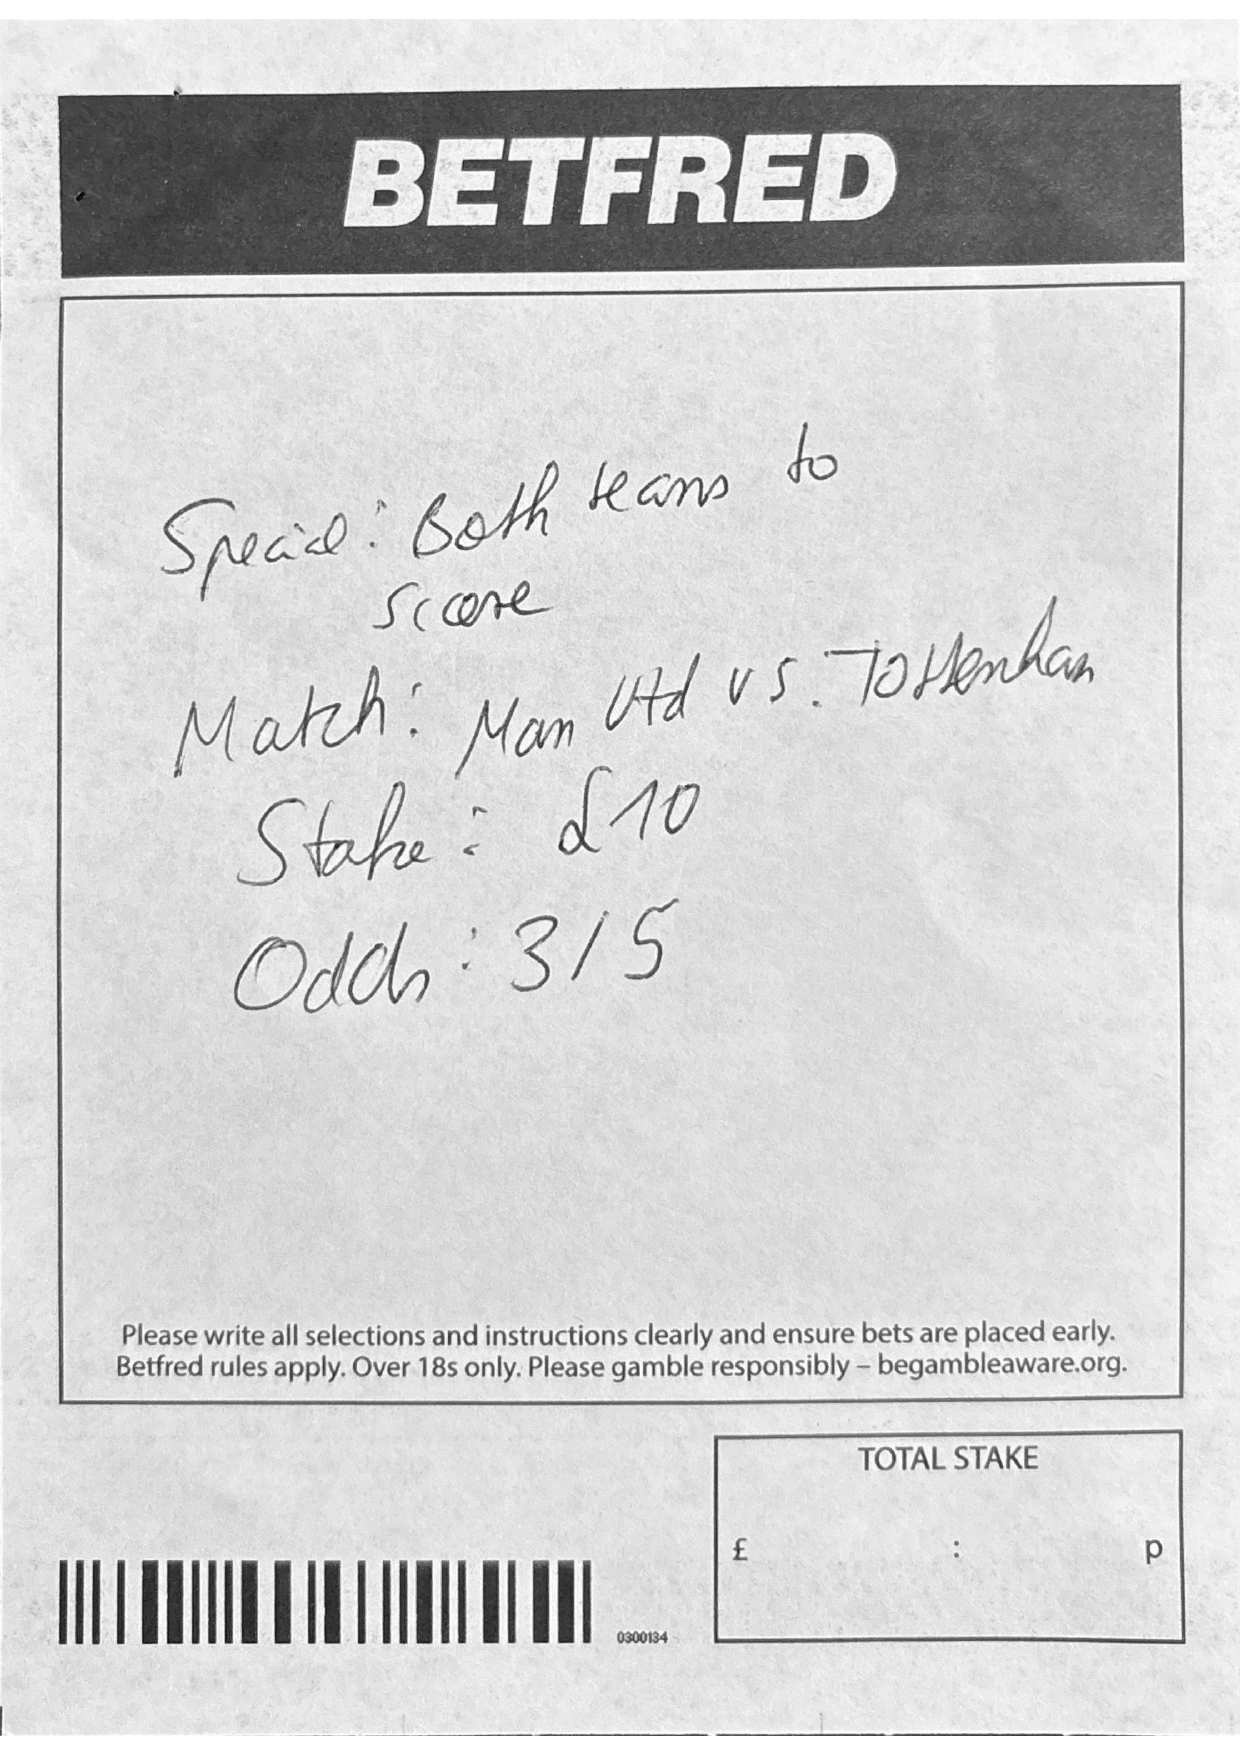 BETFRED
Special: Both teams to
score
Match: Man Utd vs. Tottenham
Stake: £10
Odds: 3/5
Please write all selections and instructions clearly and ensure bets are placed early.
Betfred rules apply. Over 18s only. Please gamble responsibly – begambleaware.org.
TOTAL STAKE
£ : p
0300134